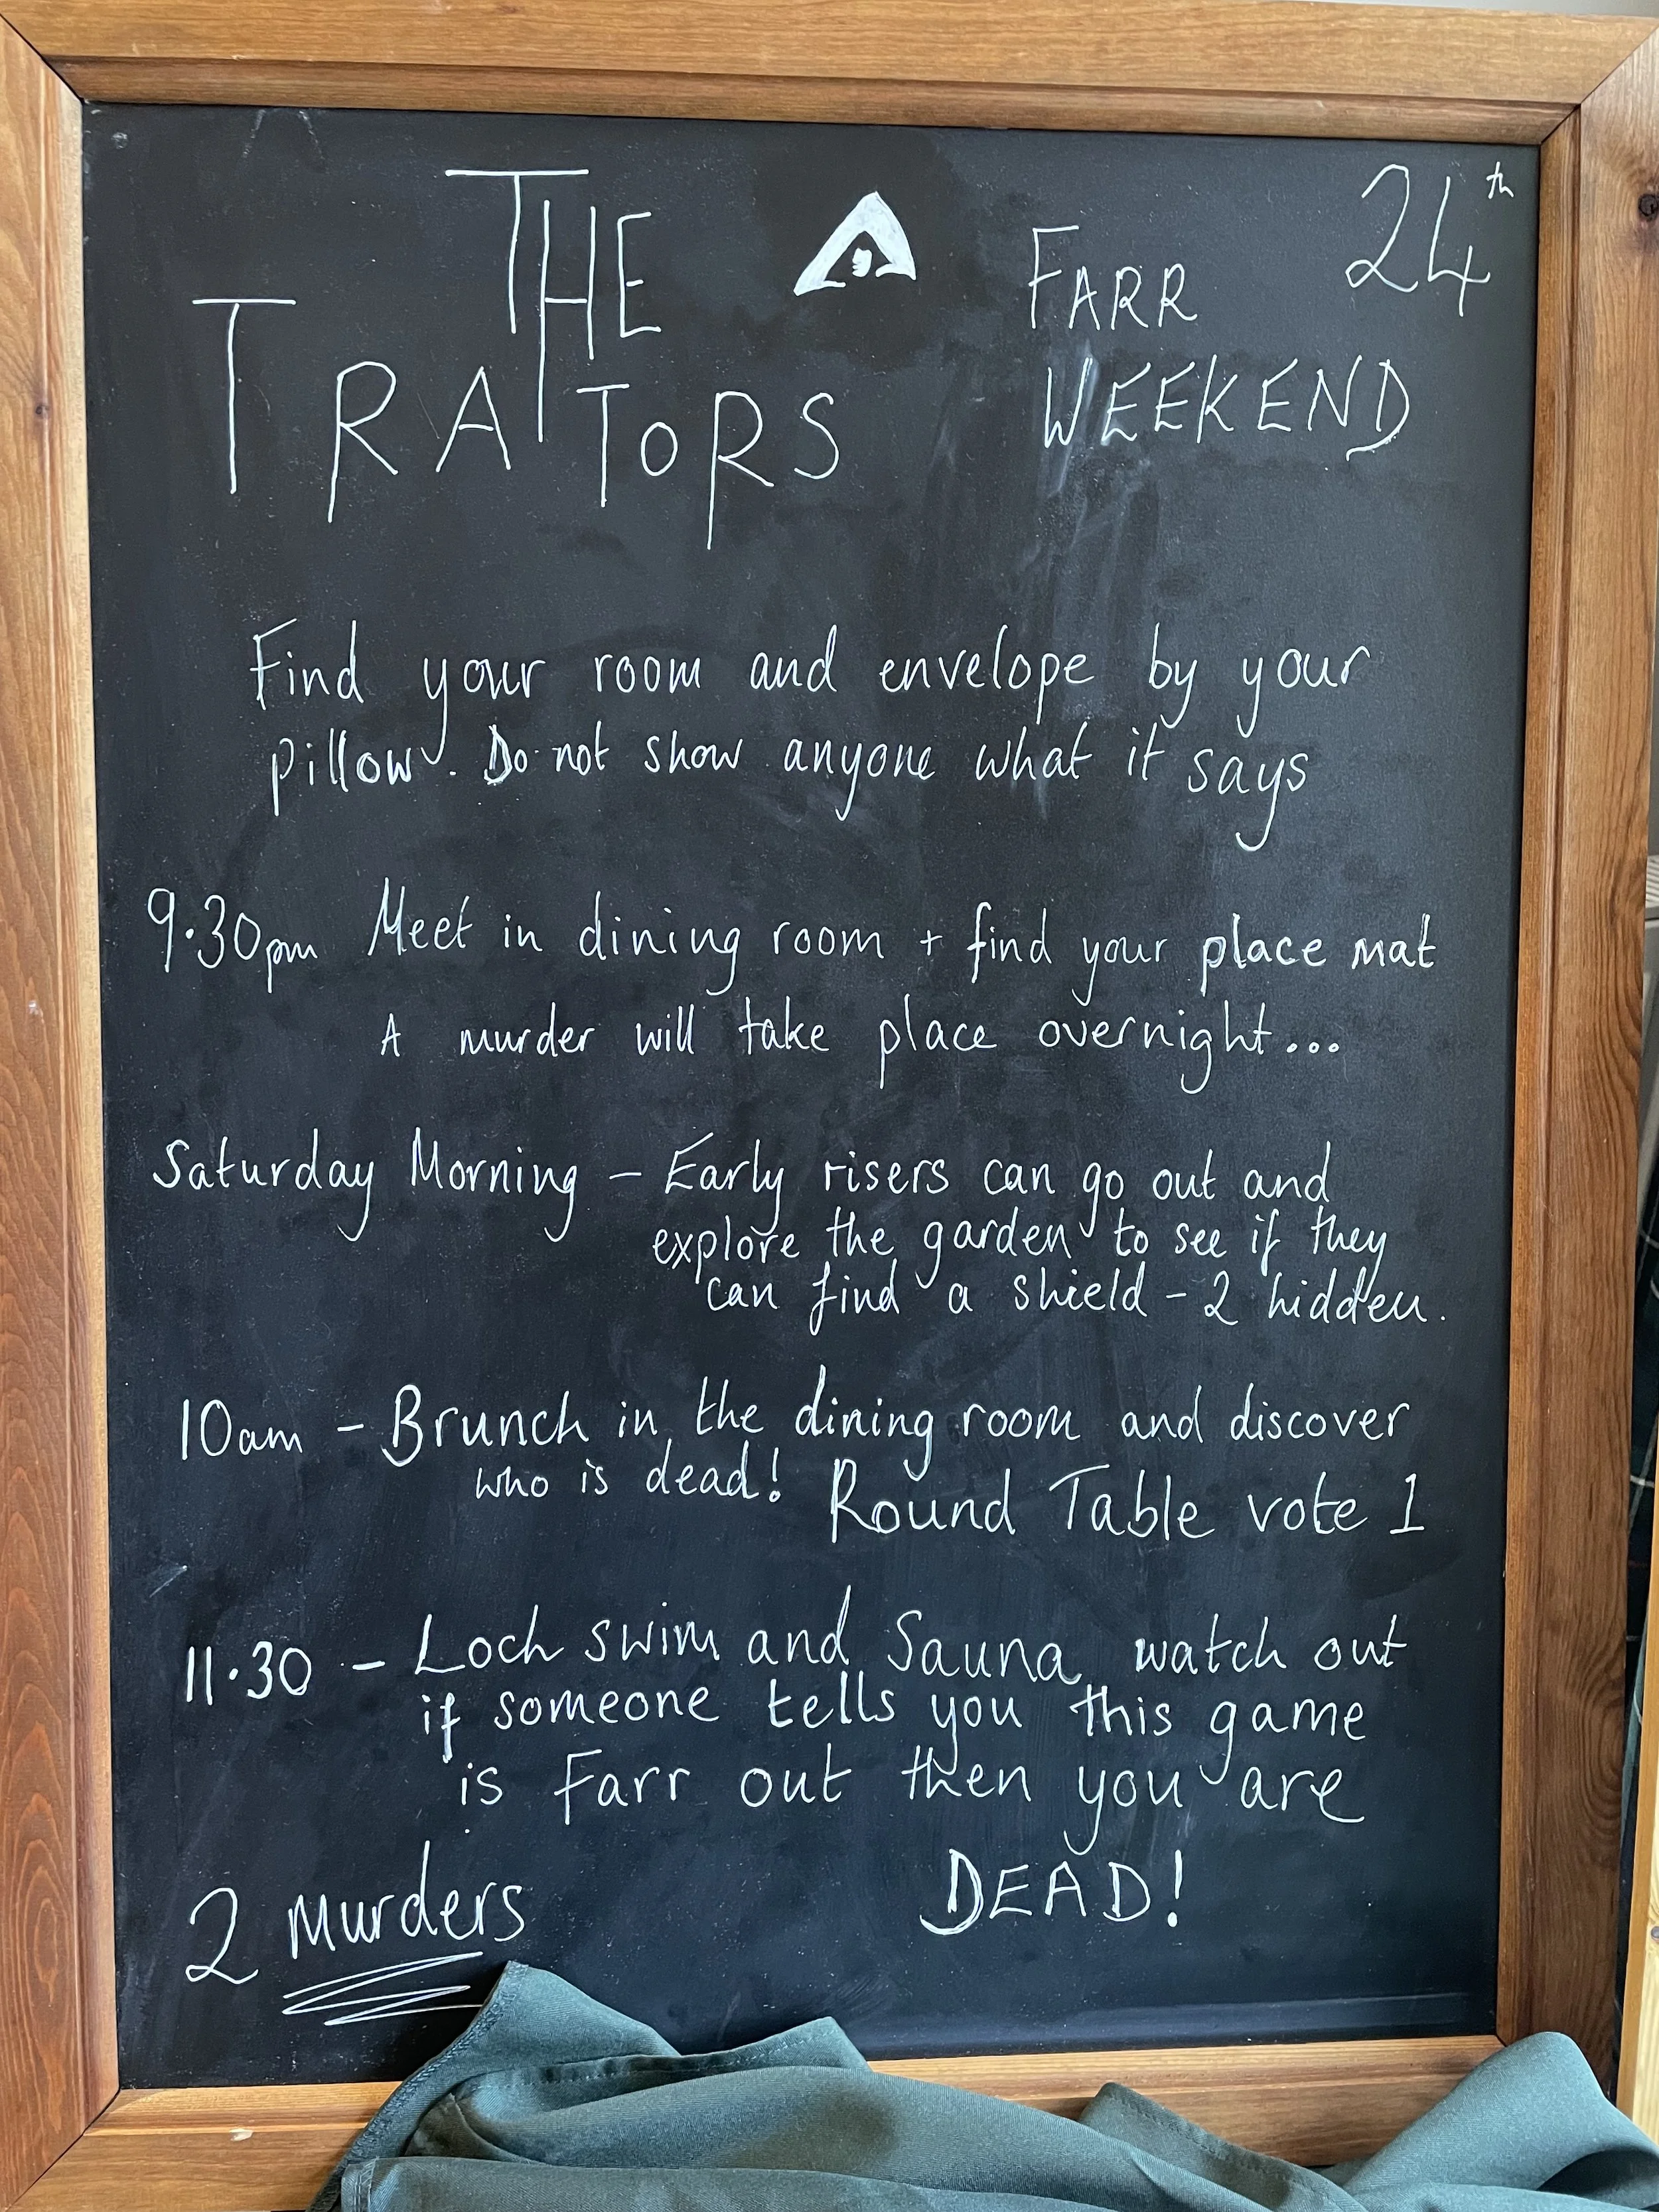 THE
TRAITORS
FARR
WEEKEND
24th
Find your room and envelope by your
pillow. Do not show anyone what it says
9.30pm Meet in dining room + find your place mat
A murder will take place overnight...
Saturday Morning – Early risers can go out and
explore the garden to see if they
can find a shield – 2 hidden.
10am – Brunch in the dining room and discover
who is dead! Round Table vote 1
11.30 – Loch swim and Sauna watch out
if someone tells you this game
is Farr out then you are
DEAD!
2 Murders